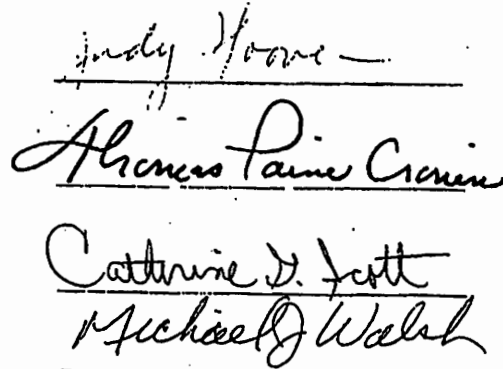 Andy Hoover
Thomas Paine Cronin
Catherine D. Scott
Michael J Walsh